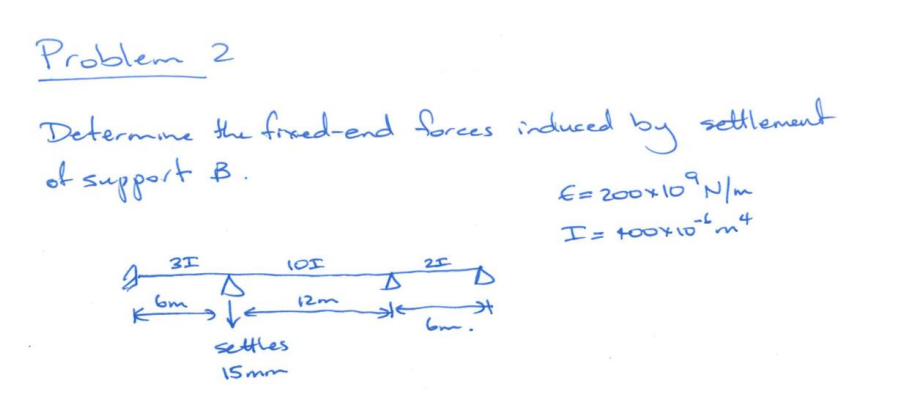 Problem 2
Determine the fixed-end forces induced by settlement
of support B.
E=200×10⁹ N/m
I= 400×10⁻⁶ m⁴
3I 10I 2I
6m 12m 6m.
settles
15mm